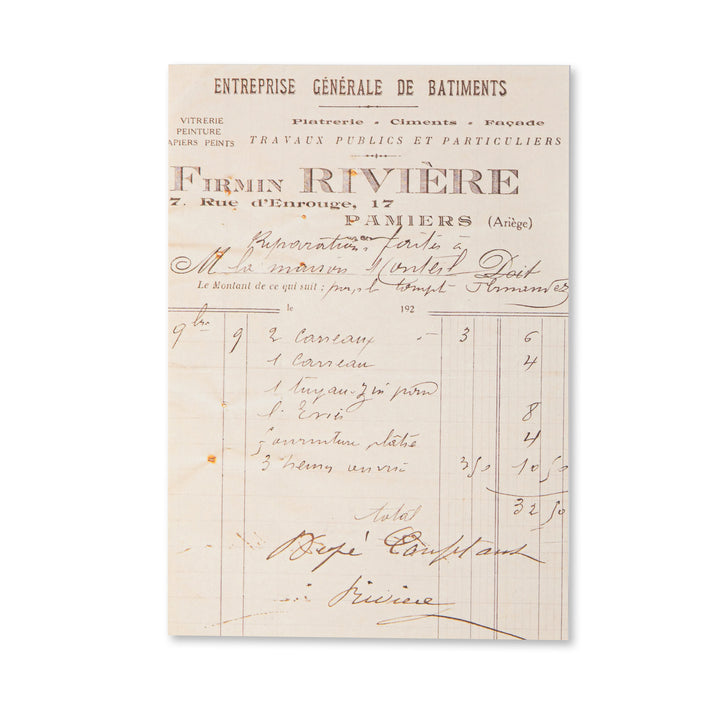 ENTREPRISE GÉNÉRALE DE BATIMENTS
VITRERIE
PEINTURE
APIERS PEINTS
Platrerie - Ciments - Façade
TRAVAUX PUBLICS ET PARTICULIERS
FIRMIN RIVIÈRE
7. Rue d'Enrouge, 17
PAMIERS (Ariège)
Réparations faites à
M la maison Doit
Le Montant de ce qui suit : Fernandez
le 192
9bre 9 2 carreaux 3 6
1 carreau 4
1 tuyau zin pour
l'Evié 8
fourniture plâtre 4
3 heures ouvrié 3 50 10 50
total 32 50
Rivière